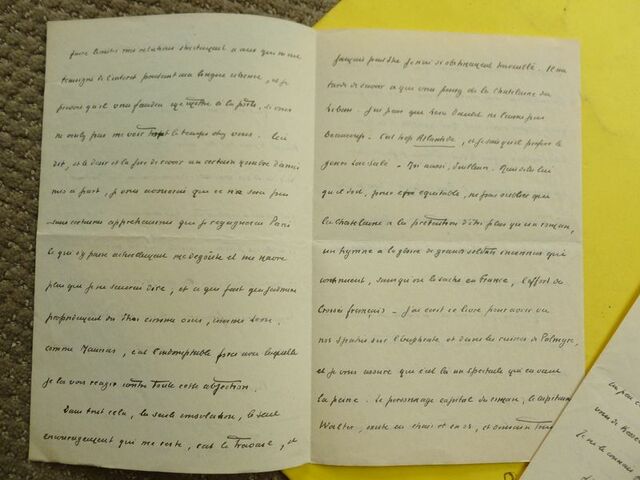 faire limiter mes relations strictement à ceux qui m'ont
témoigné de l'intérêt pendant ma longue absence, et je
pense qu'il vous faudra me mettre à la porte, si vous
ne voulez pas me voir tout le temps chez vous. Ceci
dit, et le désir et la joie de revoir un certain nombre d'amis
mis à part, je vous avouerai que ce n'est pas
sans certaines appréhensions que je regagnerai Paris
Ce qui s'y passe actuellement me dégoûte et me navre
plus que je ne saurais dire, et ce qui fait que j'admire
prodigieusement des êtres comme vous, comme Léon,
comme Maurras, c'est l'indomptable force avec laquelle
je les vois réagir contre toute cette abjection.
Dans tout cela, la seule consolation, le seul
encouragement qui me reste, c'est le travail, et
français peut-être je n'ai si obstinément travaillé. Il me
tarde de savoir ce que vous pensez de la Châtelaine du
Liban. J'ai peur que Léon Daudet ne l'aime pas
beaucoup. C'est trop Atlantide, et je sais qu'il préfère le
genre Lac Salé - Moi aussi, d'ailleurs. Mais dites lui
qu'il doit, pour être équitable, ne pas oublier que
la Châtelaine a la prétention d'être plus qu'un roman,
un hymne à la gloire de grands soldats inconnus qui
continuent, sans qu'on le sache en France, l'effort des
Croisés français - J'ai écrit ce livre pour avoir vu
nos spahis sur l'Euphrate et dans les ruines de Palmyre,
et je vous assure que c'est là un spectacle qui en vaut
la peine. Le personnage capital du roman, le capitaine
Walter, existe en chair et en os, et
un peu
vous de
Je ne le connais